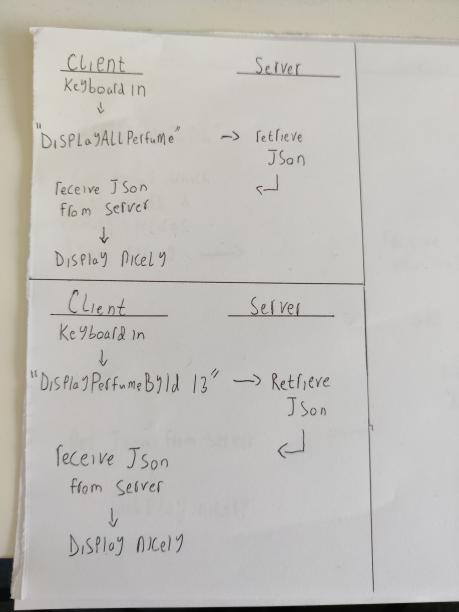 Client Server
Keyboard in
↓
"DisplayAllPerfume" → retrieve
JSon
receive JSon ↵
from server
↓
Display nicely
Client Server
Keyboard in
↓
"DisplayPerfumeById 13" → Retrieve
JSon
receive JSon ↵
from server
↓
Display nicely